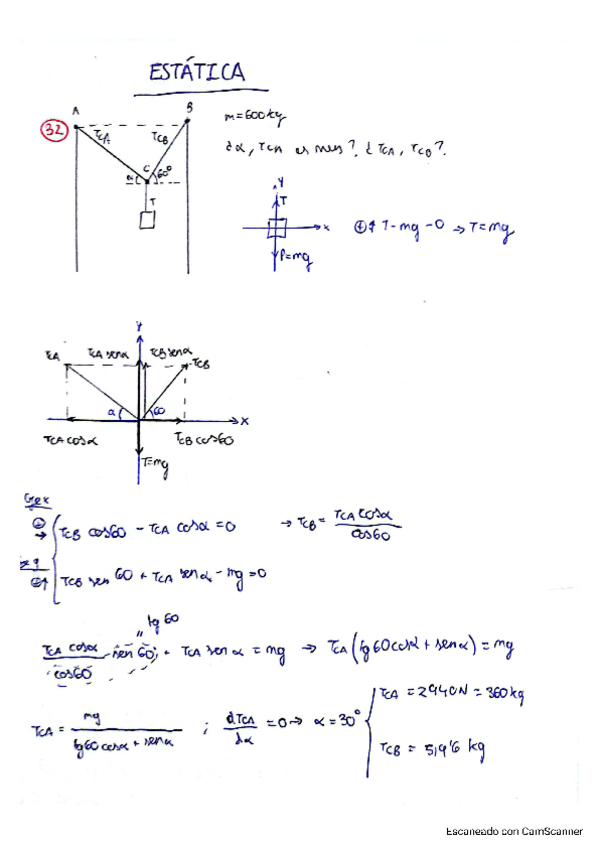 ESTÁTICA
A
B
32
TCA
TCB
C
α
60°
T
m=600kg
¿α, TCA es mes?. ¿TCA, TCB?.
Y
T
x
P=mg
⊕↑ T-mg-0 → T=mg
Y
TCA senα
TCB senα
TCB
α
60
X
TCA cosα
TCB cos60
T=mg
⊕→ TCB cos60 - TCA cosα=0 → TCB= TCA cosα / cos60
⊕↑ TCB sen 60 + TCA sen α - mg=0
tg 60
TCA cosα / cos60 sen 60 + TCA sen α = mg → TCA (tg60cosα + senα) = mg
TCA = mg / tg60 cosα + senα ; dTCA / dα =0 → α=30°
TCA = 2940N = 300kg
TCB = 519'6 kg
Escaneado con CamScanner